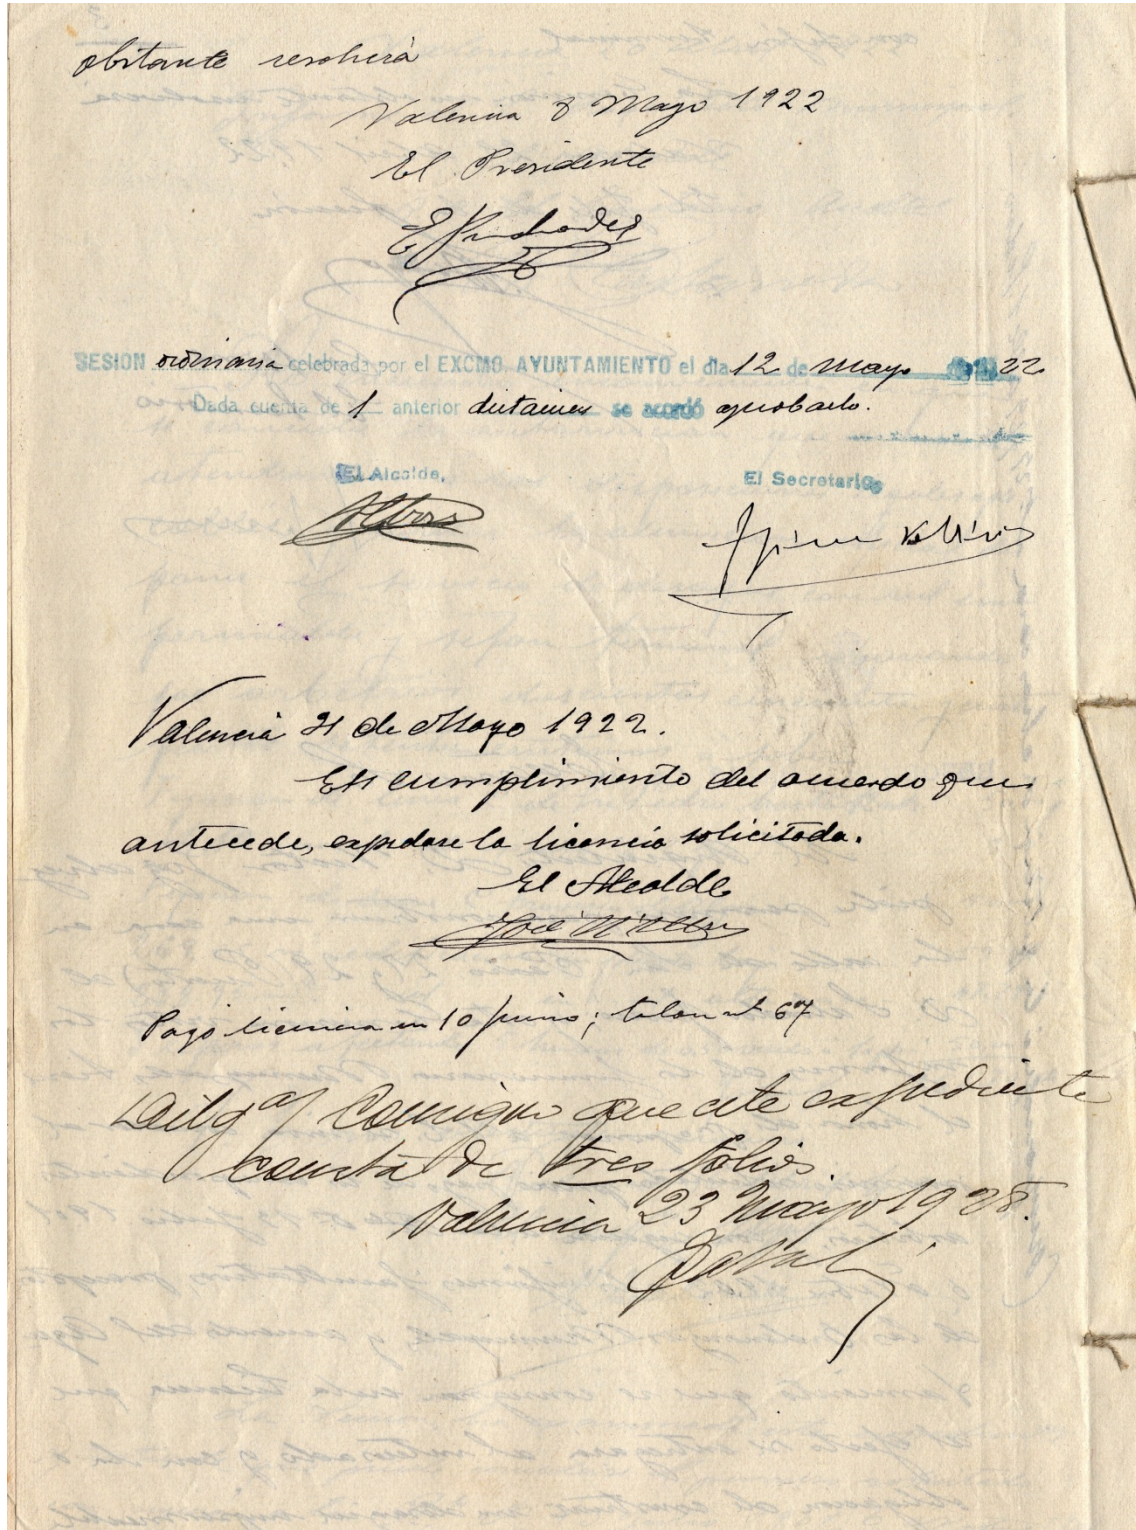 obstante resolverá
Valencia 8 Mayo 1922
El Presidente
SESION ordinaria celebrada por el EXCMO. AYUNTAMIENTO el dia 12 de Mayo 22
Dada cuenta de l anterior dictamen se acordó aprobarlo.
El Alcalde,
El Secretario
Valencia 31 de Mayo 1922.
En cumplimiento del acuerdo que
antecede, expidase la licencia solicitada.
El Alcalde
Pagó licencia en 10 junio; talon nº 67
Dilgª) Consigno que este expediente
consta de tres folios.
Valencia 23 Mayo 1928.